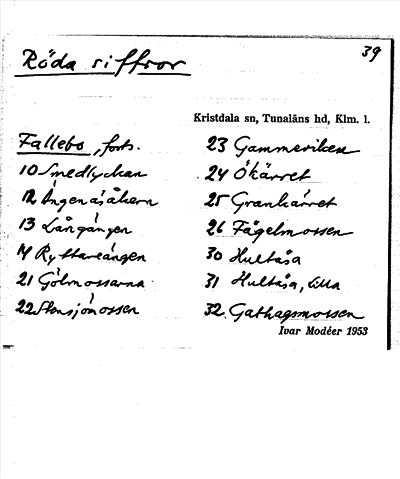 39
Röda siffror
Kristdala sn, Tunaläns hd, Klm. l.
Fallebo, forts.
10 Smedlyckan
12 Ängenäsåkern
13 Långängen
14 Ryttareängen
21 Gölmossarna
22 Stensjömossen
23 Gammeviken
24 Ökärret
25 Grankärret
26 Fågelmossen
30 Hultsåa
31 Hultsåa, Lilla
32. Gathagsmossen
Ivar Modéer 1953